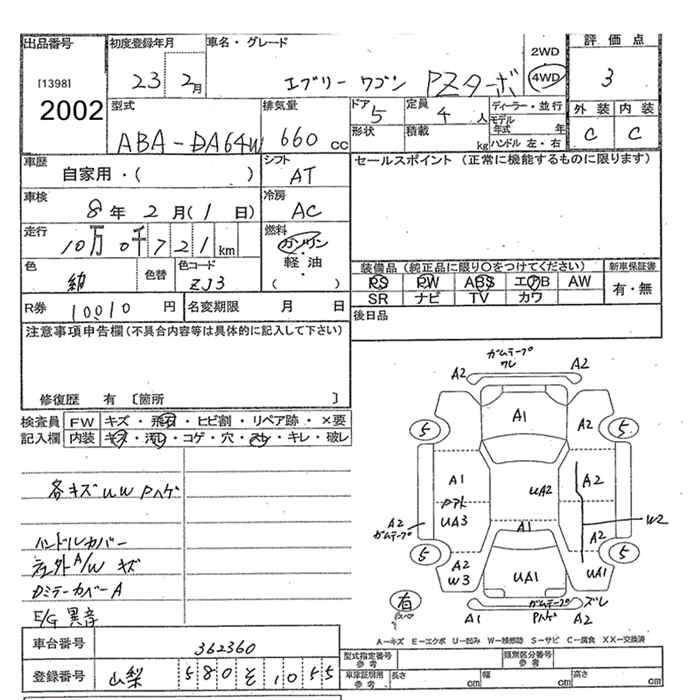 出品番号 初度登録年月 車名・グレード 2WD 評価点
[1398] 23 2月 エブリー ワゴン PZターボ 4WD 3
2002 型式 排気量 ドア 5 定員 4 人 ディーラー・並行 外装 内装
ABA-DA64W 660 CC 形状 積載 kg モデル年式 年 C C
ハンドル 左・右
車歴 シフト セールスポイント (正常に機能するものに限ります)
自家用・( ) AT
車検 冷房
8年 2月(1日) AC
走行 燃料
10万 0千 7 2 1 km ガソリン・軽油・( )
色 色替 色コード 装備品 (純正品に限り○をつけてください) 新車保証書
紺 ZJ3 PS PW ABS エアB AW 有・無
R券 10010 円 名変期限 月 日 SR ナビ TV カワ
注意事項申告欄(不具合内容等は具体的に記入して下さい) 後日品
修復歴 有 〔箇所 〕
検査員 FW キズ・飛石・ヒビ割・リペア跡・×要
記入欄 内装 キズ・汚レ・コゲ・穴・スレ・キレ・破レ
ガムテープ
ワレ
A2 A2
5 A1 A2 5
A1 UA2 A2
Pアト
UA3 W2
A2 A1 A2
ガムテープ
5 A2 5
W3 UA1 UA1
有 ガムテープ ズレ
A1 Pハゲ A2
各キズUW Pハゲ
ハンドルカバー
社外A/W キズ
Dミラーカバー A
E/G 異音
A-キズ E-エクボ U-凹み W-補修跡 S-サビ C-腐食 XX-交換済
車台番号 362360
型式指定番号 参考 類別区分番号 参考
登録番号 山梨 580 そ 1055
車庫証明用 参考 長さ cm 幅 cm 高さ cm